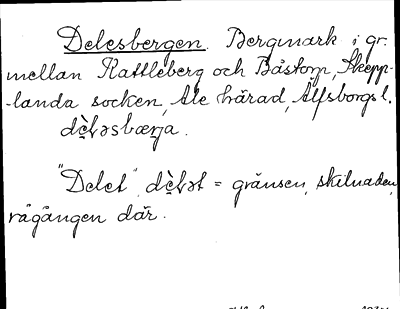 Delesbergen. Bergmark i gr.
mellan Kattleberg och Båstorp, Skepp-
-landa socken, Ale härad, Älfsborgs l.
dè̞ɫəsbærja.
"Delet", dè̞ɫət = gränsen, skilnaden,
rågången där.